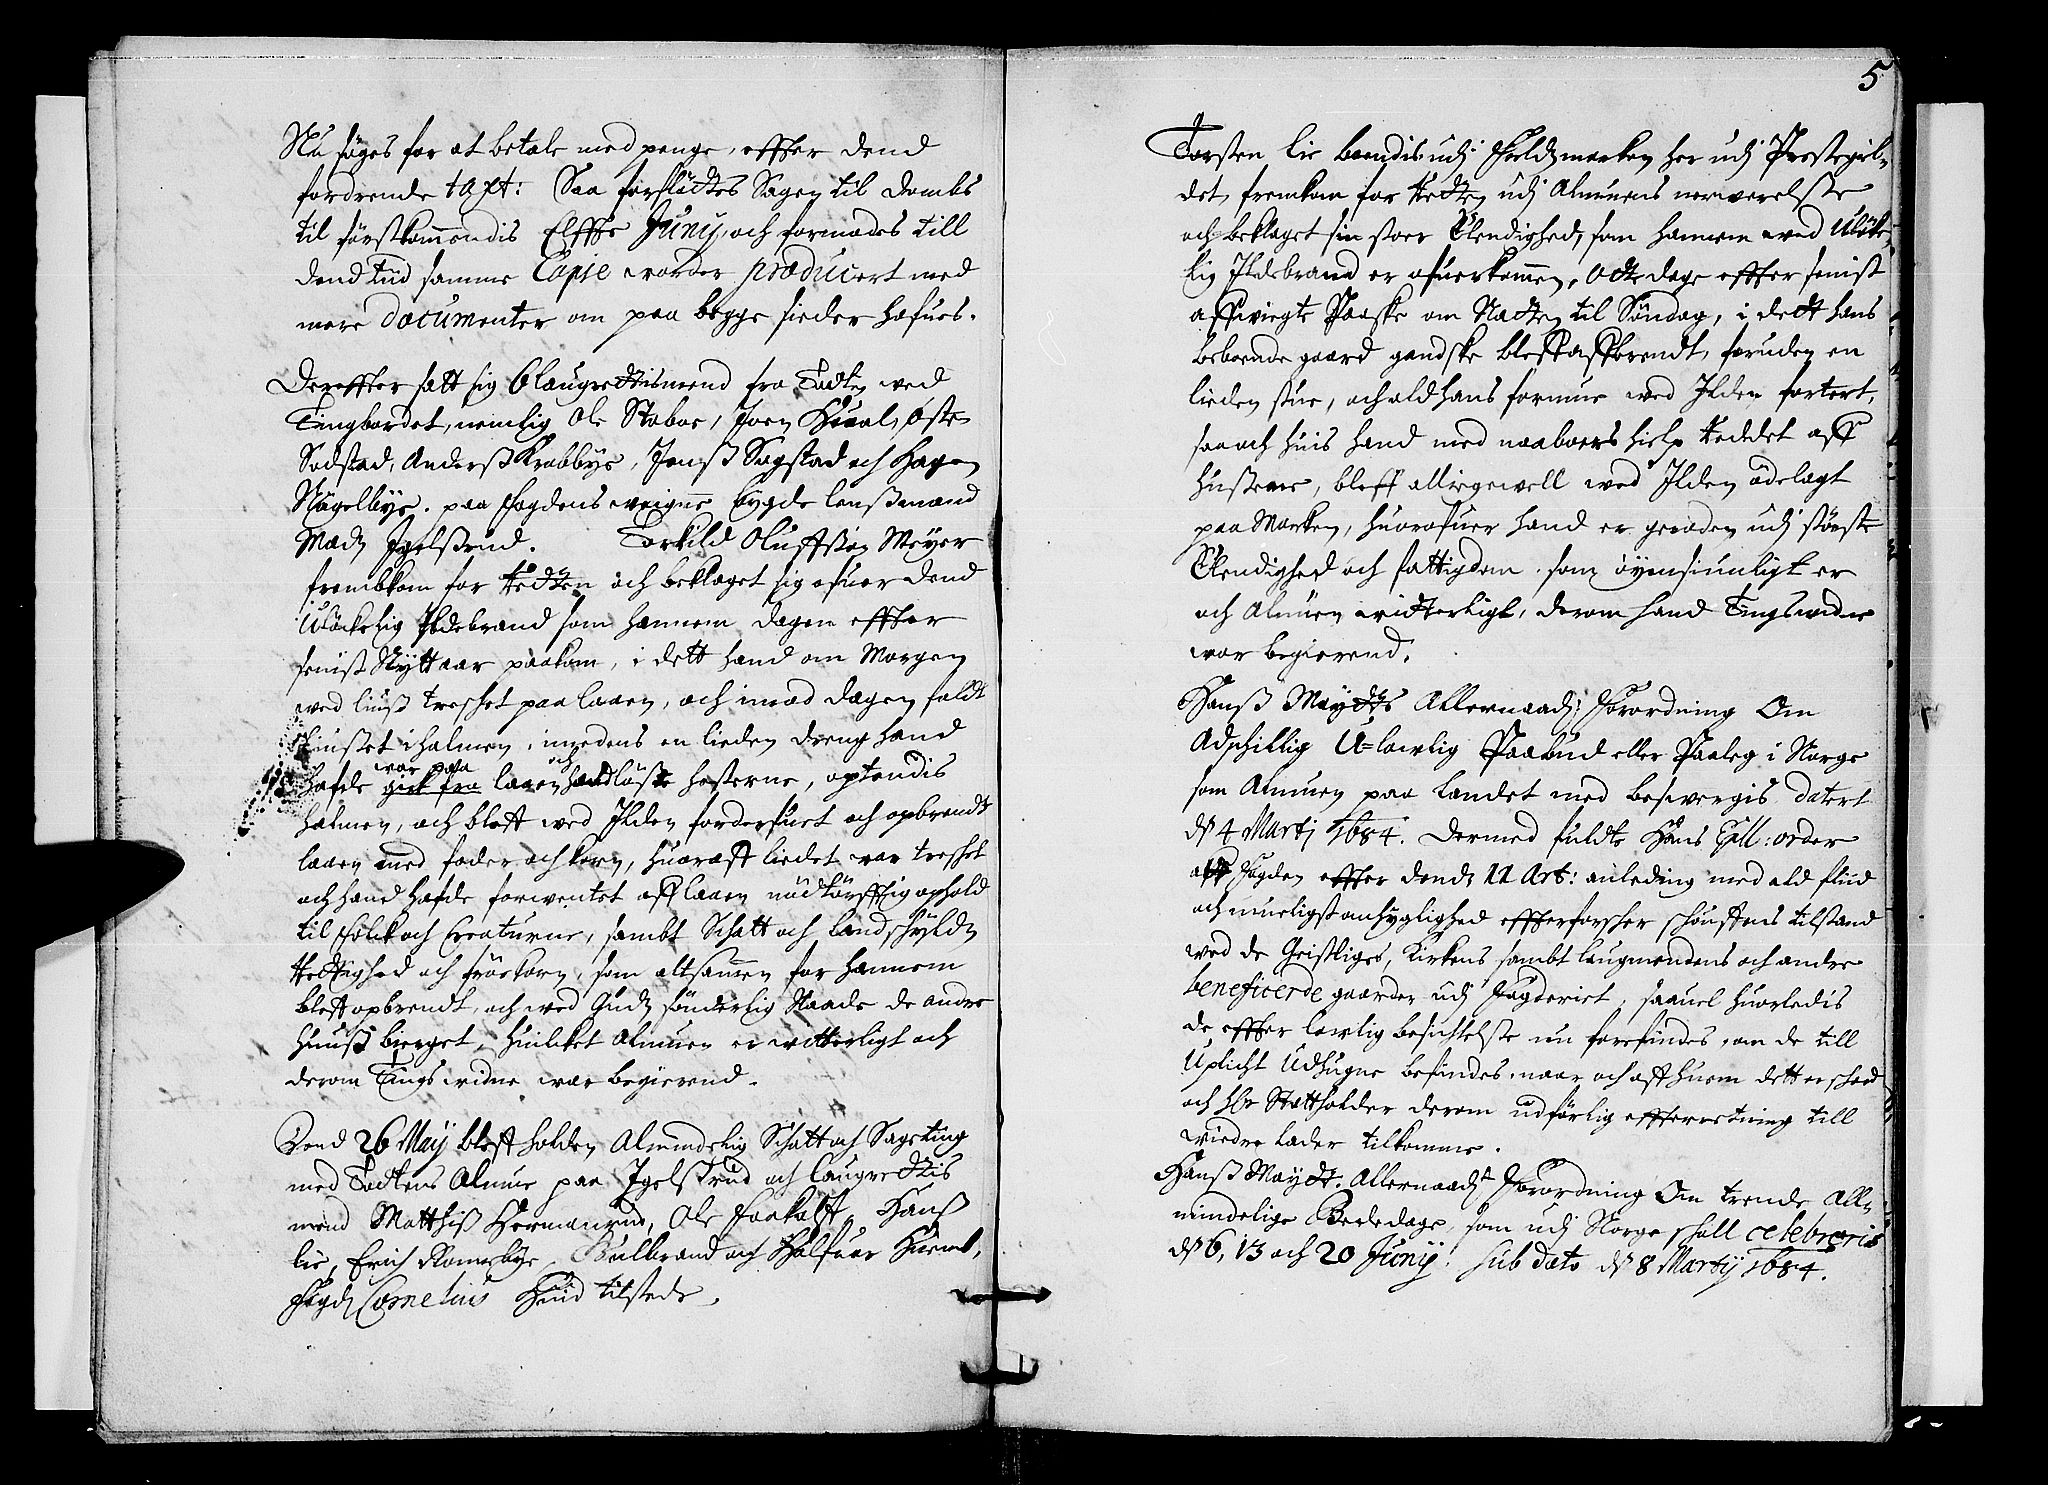 Nu søges for at betale med penge, effter dend
fordrende taxt: Saa forflöttes Sagen til dombs
til förstkommendis Elffte Junij, och formodes till
dend tiid samme Copie worder producert med
mere documenter om paa begge sieder hafues.
Dereffter satt sig 6 laugrettismend fra Todten wed
Tingbordet, nemlig Ole Staboe, Joen Houol, öste
Sodstad, Anderß Krabbye, Jenß Sogstad och Hagen
Nögelbye. paa fogdens weigne bygde lenßmand
Madz Igelßrud. Torkild Oluffßön Meyer
frembkom for Retten och beklaget sig ofuer dend
ulöckelig Ildebrand som hannem dagen effter
senist Nyttaar paakom, i dett hand om Morgen
wed liuß treschet paa laaen, och imod dagen faldt
liusset i halmen, imedens en lieden dreng hand
var paa
hafde gick fra laaen och handlöste hesterne, optendis
halmen, och bleff wed Ilden forderfuet och opbrendt
laaen med foder och korn, huoraff liedet var treschet
och hand hafde forwentet aff laaen nödtörfftig ophold
til folck och Creaturne, sambt Schatt och landschyld
Rettighed och fröekorn, som altsammen for hannem
bleff opbrendt, och wed Gudz sönderlig Naade de andre
Huuß bierget, huilcket Almuen er witterligt och
derom Tingswidne war begierend.
Dend 26 Maij bleff holden Almindelig Schatt och Sageting
med Todtens Almue paa Igelßrud och laugrettis
mend Matthiß Hermanrud, Ole Faakalff, Hanß
lie, Erich Romsbye, Gulbrand och Halfuor Huem,
fogd Cornelius Huid tilstede.
5
Torsten lie boendis udj Fieldmarken her udj Prestegiel-
det, fremkom for Retten udj Almuens nerwerelsse
och beklaget sin stoer Elendighed, som hannem wed ulöke-
lig Ildebrand er ofuerkommen, otte dage effter senist
affwiegte Paaske om Natten til Söndag, i dett hans
beboende gaard gandske bleff affbrendt, foruden en
lieden stue, och ald hans formue wed Ilden fortert,
saa och huis hand med naaboers hielp Reddet aff
Hussene, bleff alligewell wed Ilden ödelagt
paa Marken, huorofuer hand er geraaden udj störste
Elendighed och fattigdom som öyensiunligt er
och Almuen witterligt, derom hand Tingswidne
war begierend.
Hanß Maytts Allernaadj: Forordning Om
Adschillig U=lowlig Paabud eller Paaleg i Norge
som Almuen paa Landet med besvergis datert
ds 4 Martj 1684. dermed fuldte Hans Exll: order
att Fogden effter dends 11 Art: anleding med ald fliid
och mueligst omhyglighed effterforscher schouffens tilstand
wed de Geistliges, Kirkens sambt laugmendens och andre
beneficerde gaarder udj Fogderiet, saauel huorledis
de effter lowlig besichtelsse nu forefindes, om de till
Uplicht Udhugne befindes, naar och aff huem dett er scheed
och Hr Stattholder derom udförlig effterretning till
viedre lader tilkomme.
Hanß Maytt. Allernaadst Forordning Om trende All-
mindelige Bededage som udj Norge schall celebreris
ds 6, 13 och 20 Junij. sub dato ds 8 Martij 1684.